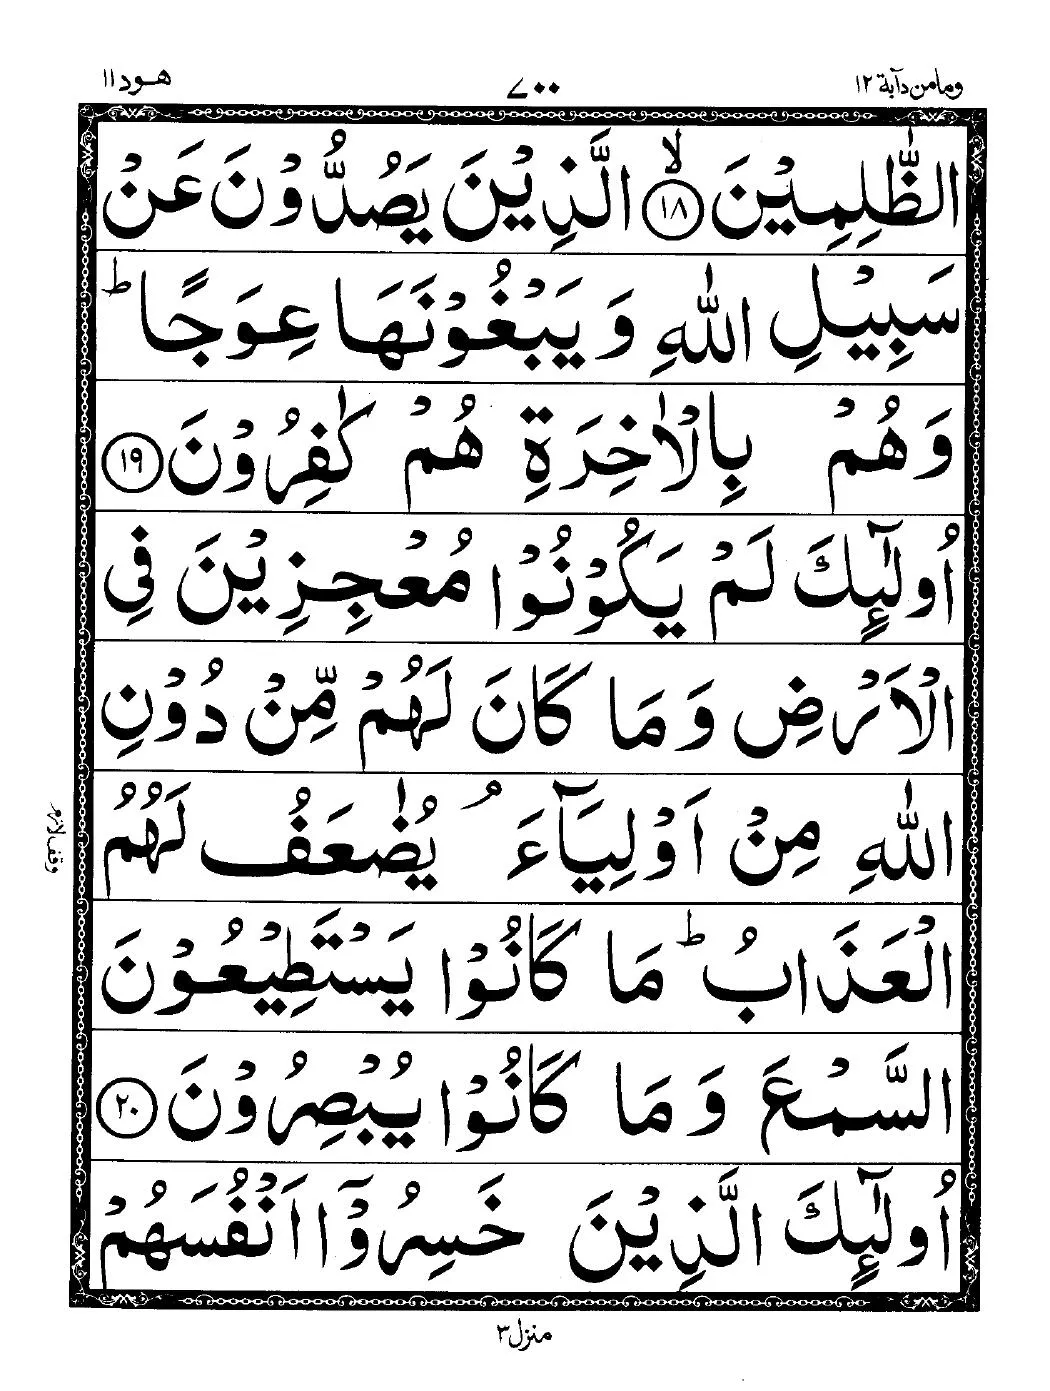 ومامن دآبة ١٢
٧٠٠
هود ١١
الظّٰلِمِيْنَ ۙ﴿١٨﴾ الَّذِيْنَ يَصُدُّوْنَ عَنْ
سَبِيْلِ اللّٰهِ وَ يَبْغُوْنَهَا عِوَجًا ؕ
وَ هُمْ بِالْاٰخِرَةِ هُمْ كٰفِرُوْنَ ﴿١٩﴾
اُولٰٓئِكَ لَمْ يَكُوْنُوْا مُعْجِزِيْنَ فِي
الْاَرْضِ وَ مَا كَانَ لَهُمْ مِّنْ دُوْنِ
اللّٰهِ مِنْ اَوْلِيَآءَ ۘ يُضٰعَفُ لَهُمُ
وقف لازم
الْعَذَابُ ؕ مَا كَانُوْا يَسْتَطِيْعُوْنَ
السَّمْعَ وَ مَا كَانُوْا يُبْصِرُوْنَ ﴿٢٠﴾
اُولٰٓئِكَ الَّذِيْنَ خَسِرُوْۤا اَنْفُسَهُمْ
منزل ٣